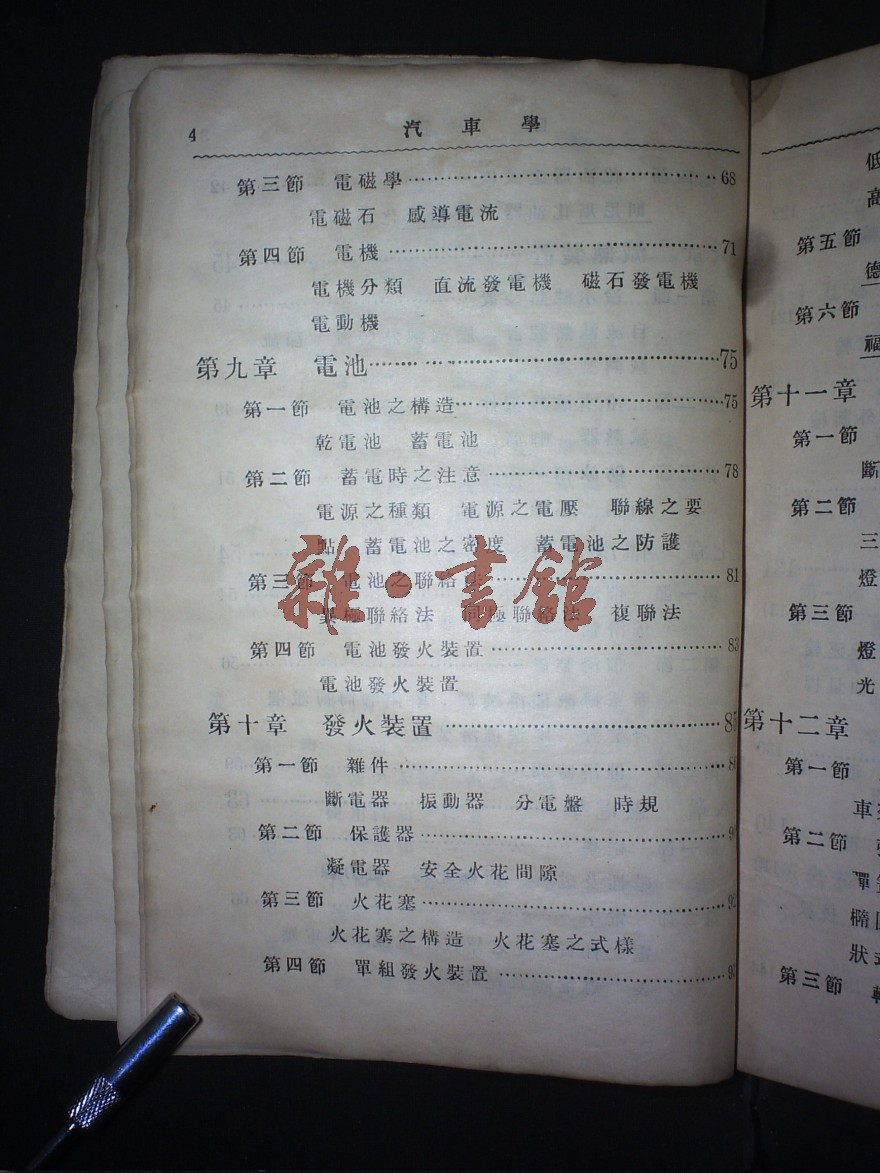 4 汽車學
第三節 電磁學 68
電磁石 感導電流
第四節 電機 71
電機分類 直流發電機 磁石發電機
電動機
第九章 電池 75
第一節 電池之構造 75
乾電池 蓄電池
第二節 蓄電時之注意 78
電源之種類 電源之電壓 聯線之要
點 蓄電池之密度 蓄電池之防護
第三節 電池之聯絡法 81
異極聯絡法 同極聯絡法 複聯法
第四節 電池發火裝置 83
電池發火裝置
第十章 發火裝置
第一節 雜件
斷電器 振動器 分電盤 時規
第二節 保護器
凝電器 安全火花間隙
第三節 火花塞 92
火花塞之構造 火花塞之式樣
第四節 單組發火裝置
雜·書館
低
高
第五節
德
第六節
福
第十一章
第一節
斷
第二節
三
燈
第三節
燈
光
第十二章
第一節
車
第二節
單
橢
狀
第三節